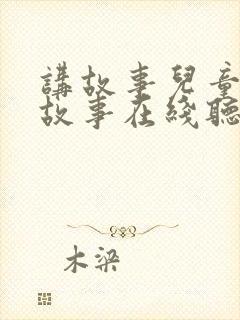 講故事兒童
故事在綫聽
木梁